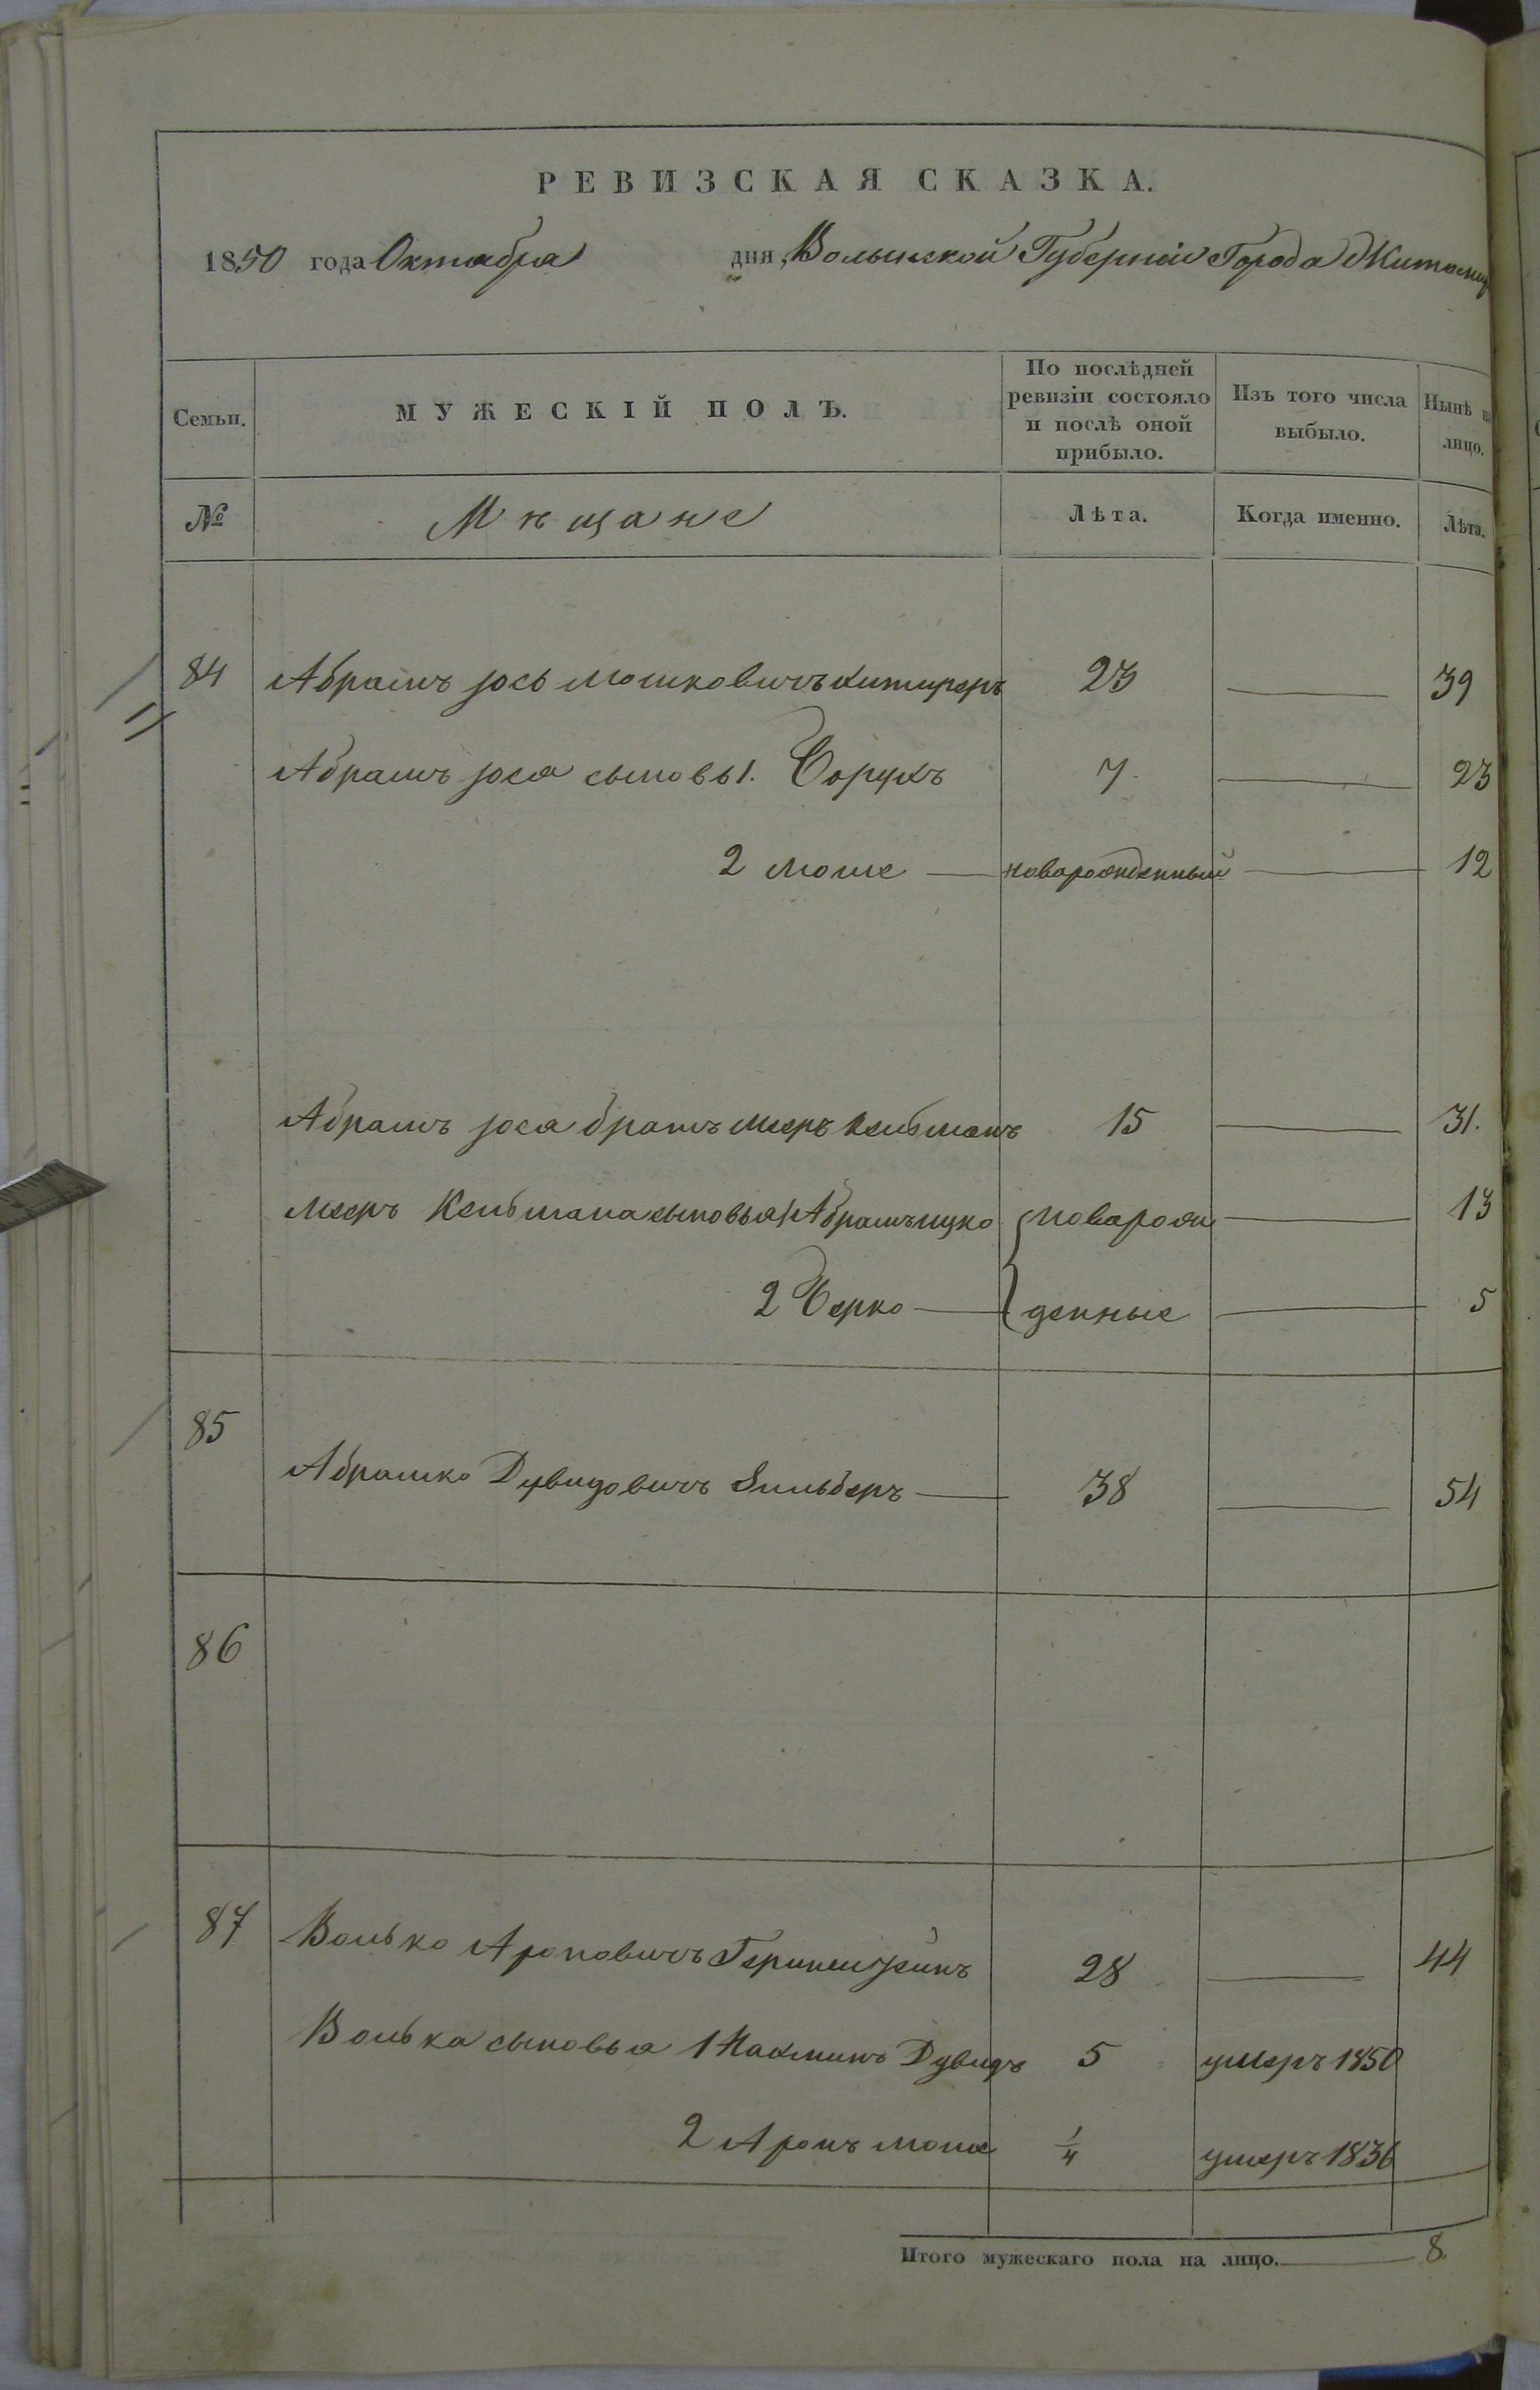 РЕВИЗСКАЯ СКАЗКА.
1850 года Октабра дня, Волынской Губерніи Города Житомир
Семьи. МУЖЕСКІЙ ПОЛЪ. По послѣдней ревизіи состояло и послѣ оной прибыло. Изъ того числа выбыло. Нынѣ на лицо.
№ Мѣщане Лѣта. Когда именно. Лѣта.
84 Абрамъ Іось Мошковичъ 23 — 39
Абрамъ Іося сыновь 1. Борухъ 7 — 23
2 Моше — новарожденный — 12
Абрамъ Іося братъ Мееръ Кельманъ 15 — 31.
Мееръ Кельмана сыновья 1 Абрамъ Ицко новарож — 13
2 Берко — денные — 5
85 Абрамко Дувидовичъ Зильберъ — 38 — 54
86
87 Волько Ароновичъ 28 — 44
Волька сыновья 1 Нахманъ Дувидъ 5 умеръ 1850
2 Аронъ Моше 1/4 умеръ 1836
Итого мужескаго пола на лицо. — 8.